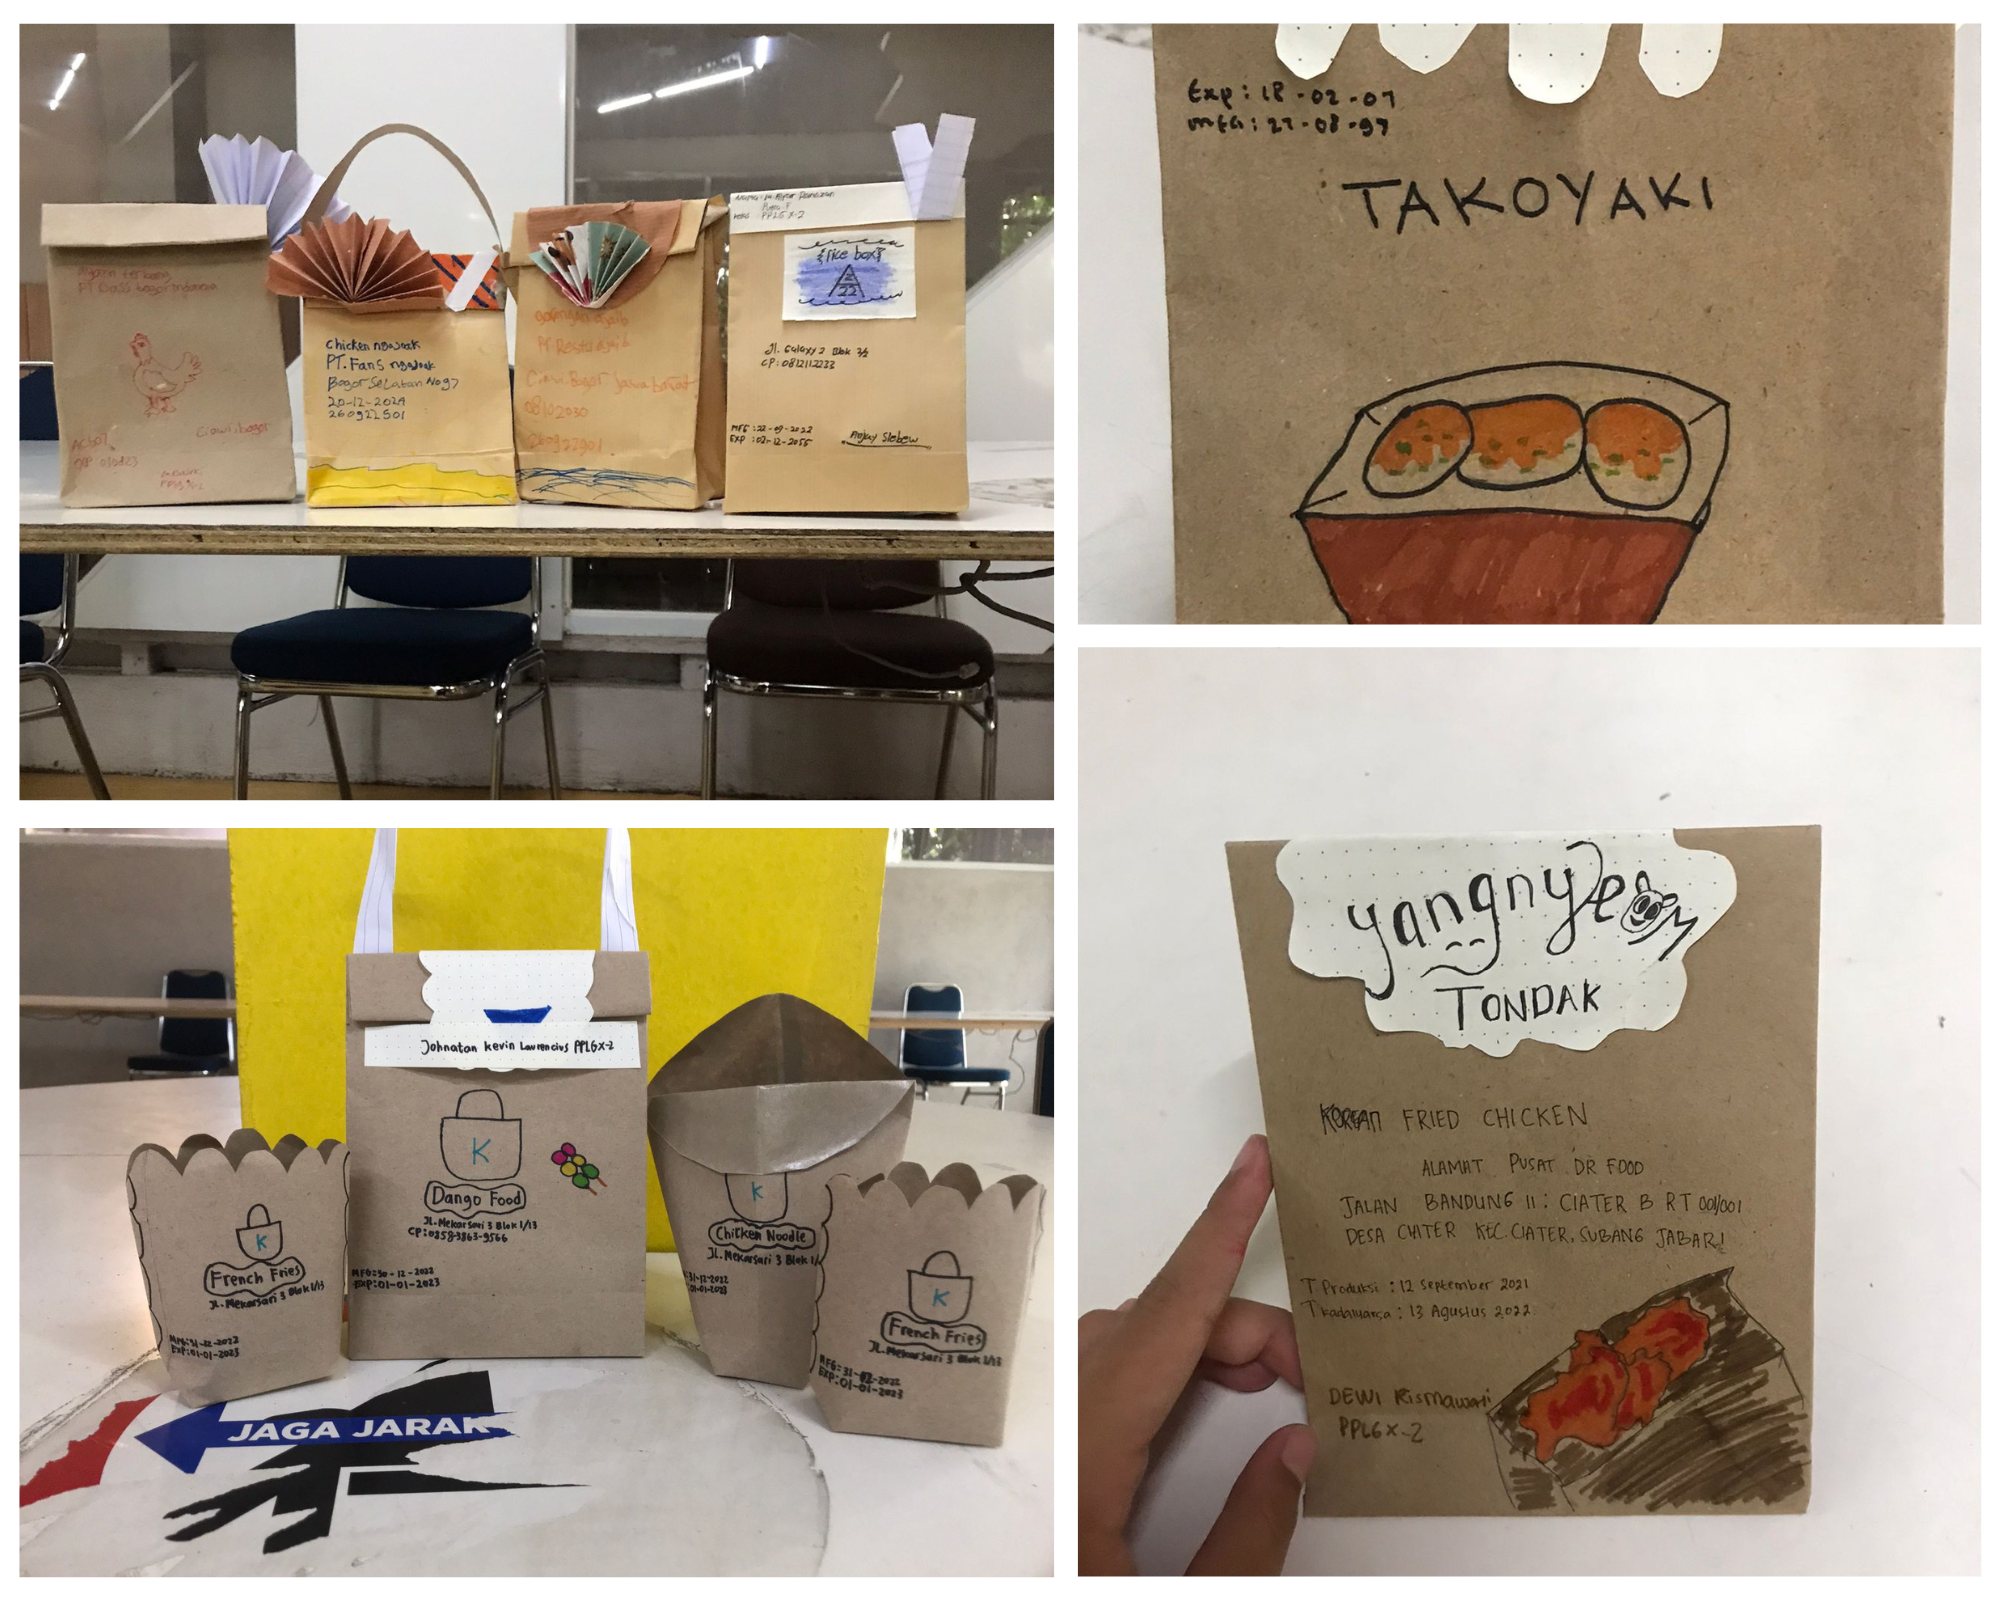 Ayam terbang
Bogor Indonesia
Ciawi, bogor
chicken ngawak
PT. Fans ngawak
Bogor Selatan No 97
20-12-2024
260922501
gorengan ajaib
PT Resto ajaib
Ciawi. Bogor Jawa barat
08102030
260922901
PPLG X-2
rice box
22
Jl. Galaxy 2 Blok 3/2
CP: 0812112233
MFG: 22-09-2022
EXP: 02-12-2055
Anjay Slebew
Exp: 18-02-07
mfg: 27-08-97
TAKOYAKI
Johnatan kevin Lawrencius PPLG X-2
K
Dango Food
JL. Mekarsari 3 Blok 1/13
CP: 0858-3863-9566
MFG: 30-12-2022
EXP: 01-01-2023
K
French Fries
JL. Mekarsari 3 Blok 1/13
MFG: 31-12-2022
EXP: 01-01-2023
K
Chicken Noodle
JL. Mekarsari 3 Blok 1/
31-12-2022
01-01-2023
K
French Fries
JL. Mekarsari 3 Blok 1/13
MFG: 31-12-2022
EXP: 01-01-2023
JAGA JARAK
yangnyeom
TONDAK
KOREAN FRIED CHICKEN
ALAMAT PUSAT DR FOOD
JALAN BANDUNG 11: CIATER B RT 001/001
DESA CIATER KEC. CIATER, SUBANG JABAR!
T Produksi : 12 September 2021
T kadaluarsa : 13 Agustus 2022
DEWI Rismawati
PPLG X-2